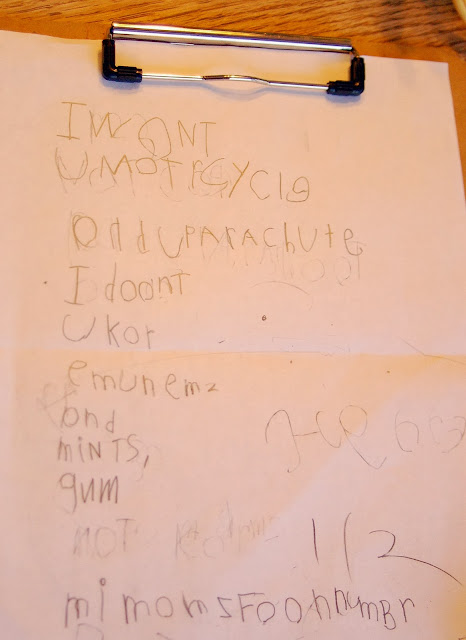 I WONT
U MOTRCYCLe
Ond U PARAchUTe
I doonT
U kor
emunemz
ond
miNTS,
gum
NOT
mi momsFoonnumBr